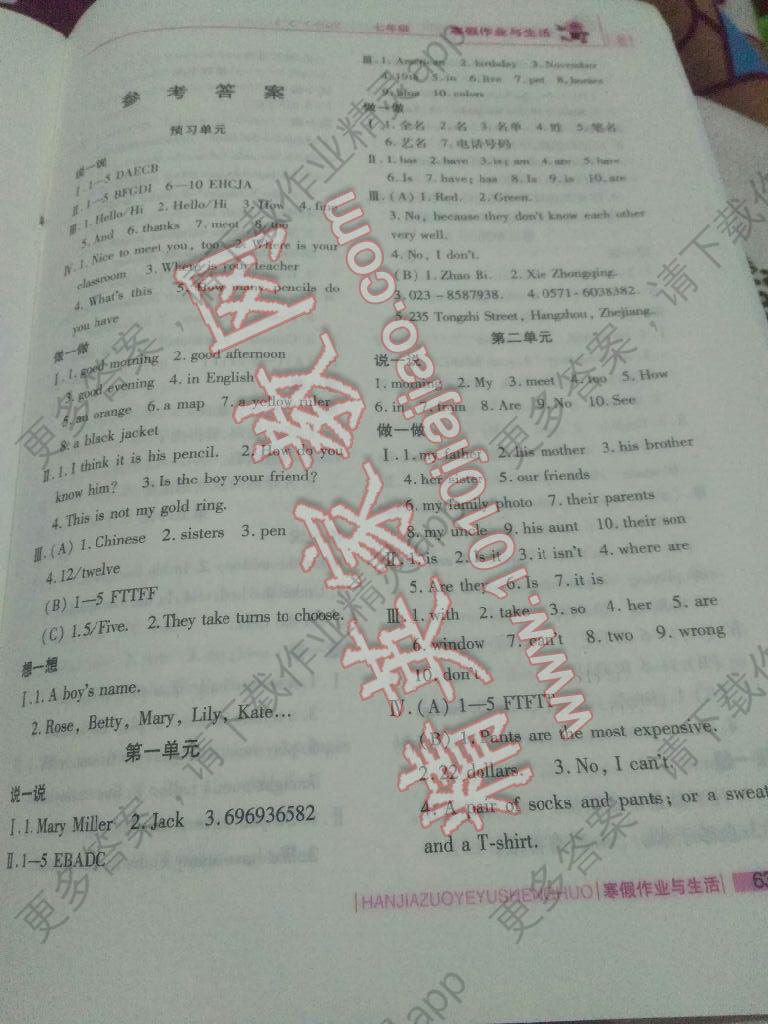 七年级 寒假作业与生活
参考答案
预习单元
说一说
Ⅰ.1—5 DAECB
Ⅱ.1—5 BFGDI 6—10 EHCJA
Ⅲ.1. Hello/Hi 2. Hello/Hi 3. How 4. fine
5. And 6. thanks 7. meet 8. too
Ⅳ.1. Nice to meet you, too 2. Where is your
classroom 3. Where is your teacher
4. What's this 5. How many pencils do
you have
做一做
Ⅰ.1. good morning 2. good afternoon
3. good evening 4. in English
5. an orange 6. a map 7. a yellow ruler
8. a black jacket
Ⅱ.1. I think it is his pencil. 2. How do you
know him? 3. Is the boy your friend?
4. This is not my gold ring.
Ⅲ.(A) 1. Chinese 2. sisters 3. pen
4. 12/twelve
(B) 1—5 FTTFF
(C) 1.5/Five. 2. They take turns to choose.
想一想
Ⅰ.1. A boy's name.
2. Rose, Betty, Mary, Lily, Kate…
第一单元
说一说
Ⅰ.1. Mary Miller 2. Jack 3. 696936582
Ⅱ.1—5 EBADC
Ⅲ.1. American 2. birthday 3. November
4. 19th 5. in 6. live 7. pet 8. horses
9. blue 10. colors
做一做
Ⅰ.1. 全名 2. 名 3. 名单 4. 姓 5. 笔名
6. 艺名 7. 电话号码
Ⅱ.1. has 2. have 3. is; am 4. are 5. have
6. Is 7. have; has 8. Is 9. is 10. are
Ⅲ.(A) 1. Red. 2. Green.
3. No, because they don't know each other
very well.
4. No, I don't.
(B) 1. Zhao Bi. 2. Xie Zhongqing.
3. 023-8587938. 4. 0571-6038382.
5. 235 Tongzhi Street, Hangzhou, Zhejiang.
第二单元
说一说
1. morning 2. My 3. meet 4. too 5. How
6. in 7. from 8. Are 9. No 10. See
做一做
Ⅰ.1. my father 2. his mother 3. his brother
4. her sister 5. our friends
6. my family photo 7. their parents
8. my uncle 9. his aunt 10. their son
Ⅱ.1. is 2. Is it 3. it isn't 4. where are
5. Are they 6. Is 7. it is
Ⅲ.1. with 2. take 3. so 4. her 5. are
6. window 7. can't 8. two 9. wrong
10. don't
Ⅳ.(A) 1—5 FTFTT
(B) 1. Pants are the most expensive.
2. 22 dollars. 3. No, I can't.
4. A pair of socks and pants; or a sweat
and a T-shirt.
HANJIAZUOYEYUSHENGHUO 寒假作业与生活 63
精英家教网
www.1010jiajiao.com
更多答案，请下载作业精灵app
更多答案，请下载作业精灵app
更多答案，请下载作业
更多答案，请下载作业